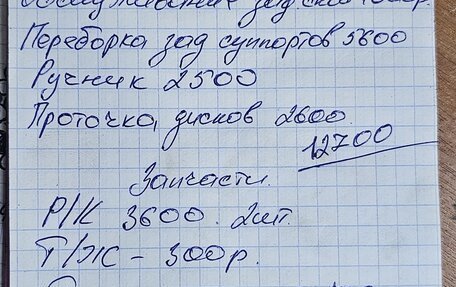 зад
Переборка зад суппортов 5600
Ручник 2500
Проточка дисков 2600
12700
Запчасти.
Р/К 3600. 2шт.
Т/Ж - 300р.